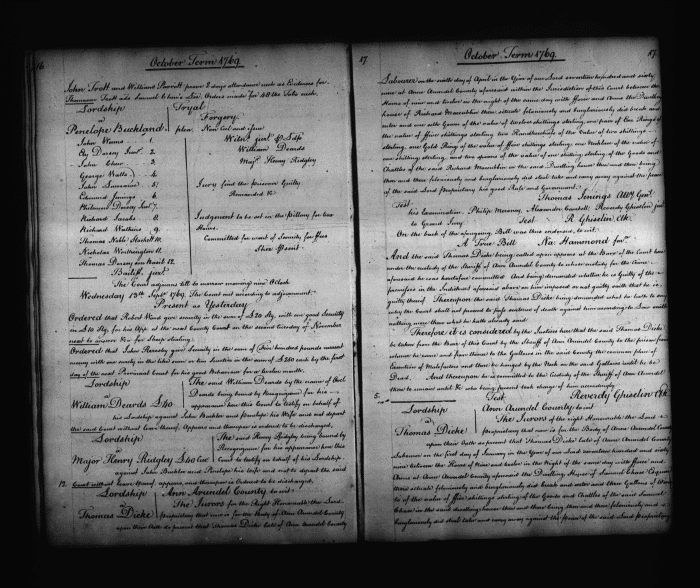 16
October Term 1769.
John Trott and William Pherritt prove 2 days attendance each as Evidences for
Thomas Trott ads Samuel Chew's Lea. Orders made for 40 lbs Tobo each.
Lordship
a
Penelope Buckland
Tryal
Forgery
plea. Non Cul and issue
John Warns 1
Ely Dorsey Junr 2
John Chew 3
George Watts 4
John Sumraise 5
Edmund Jenings 6
Philemon Dorsey Junr 7
Richard Jacobs 8
Richard Watkins 9
Thomas Noble Stockett 10
Nicholas Worthington 11
Thomas Dorsey 12
Bailiff jurat
Witns jurat
William Deards
Majr Henry Ridgley
Jury find the Prisoner Guilty
Remanded
Judgment to be set in the Pillory for two
Hours.
Committed for want of Security for Fees
The Court adjourns till to morrow morning nine OClock
Wednesday 13th Septr 1769. The Court met according to adjournment.
Present as Yesterday
Ordered that Robert Wood give security in the sum of £20 Stg, with one good Security
in £10 Stg. for his App at the next County Court on the second tuesday of November
next to answer for Sheep stealing.
Ordered that John Ramsby give Security in the sum of Five hundred pounds current
money with one surety in the like sum or two Sureties in the sum of £250 each by the first
day of the next Provincial Court for his good Behaviour for a twelve month.
Lordship
a
William Deards £40
The said William Deards by the name of
Deards being bound by Recognizance for his
appearance here this Court to testify on behalf of
his Lordship against John Bucklan and Penelope his Wife and not depart
the said Court without Leave thereof. Appears and thereupon is ordered to be discharged,
Lordship
a
Major Henry Ridgley £40 Cur.
The said Henry Ridgley being bound by
Recognizance for his appearance here this
Court to testify on behalf of his Lordship
against John Bucklan and Penelope his wife and not to depart the said
Court without Leave thereof, appears and thereupon is Ordered to be discharged,
Lordship
a
Thomas Dicke
Ann Arundel County to wit.
The Jurors for the Right Honourable the Lord
proprietary that now is for the Body of Ann Arundel County
upon their Oath do present that Thomas Dicke late of Ann Arundel County
17
October Term 1769.
17.
Labourer on the ninth day of April in the Year of our Lord seventeen hundred and sixty
nine at Ann Arundel County aforesaid within the Jurisdiction of this Court between the
Hours of nine and twelve in the night of the same day with force and Arms the Dwelling
house of Richard Maccubbin then situate feloniously and burglariously did break and
enter and one silk Gown of the value of twelve shillings sterling one pair of Ear Rings of
the value of five shillings sterling two Handkerchiefs of the Value of two shillings
sterling, one Gold Ring of the value of five shillings sterling one of the value of
one shilling sterling, and two of the value of one shilling sterling of the Goods and
Chattles of the said Richard Maccubbin in the said Dwelling house then and there being
then and there feloniously and burglariously did steal take and carry away against the peace
of the said Lord Proprietary his good Rule and Government.
Thomas Jenings Atty Genl.
Test.
his Examination. Philip Mooney, Alexander Campbell Reverdy Ghiselin jurat
to Grand Jury Test R. Ghiselin Clk.
On the back of the aforegoing Bill was thus endorsed, to wit.
A True Bill Na: Hammond forn.
And the said Thomas Dicke being called upon appears at the Barr of the Court here
under the custody of the Sheriff of Ann Arundel County to whose custody for the Cause
aforesaid he was heretofore committed. And being demanded whether he is Guilty of the
premises in the Indictment aforesaid above on him imposed or not guilty saith that he is
guilty thereof. Thereupon the said Thomas Dicke being demanded what he hath to say
why the Court shall not proceed to pass sentence of death against him according to Law saith
nothing more than what he hath already said.
Therefore it is considered by the Justices here that the said Thomas Dicke
be taken from the Barr of this Court by the Sheriff of Ann Arundel County to the prison from
whence he came and from thence to the Gallows in the said County the common place of
Execution of Malefactors and there be hanged by the Neck on the said Gallows until he be
Dead. And thereupon he is committed to the Custody of the Sheriff of Ann Arundel
then to remain until who being present took charge of him accordingly
Test Reverdy Ghiselin Clk
Lordship
a
Thomas Dicke
Ann Arundel County to wit
The Jurors of the Right Honourable the Lord
proprietary that now is for the Body of Ann Arundel County
upon their Oath do present that Thomas Dicke late of Ann Arundel County
Labourer on the first day of January in the Year of our Lord seventeen hundred and sixty
nine between the Hours of Nine and twelve in the Night of the same day with force and
Arms at Ann Arundel County aforesaid the Dwelling House of Samuel Chase Esquire
there situate feloniously and burglariously did break and enter and three Gallons of Rum
to of the value of five shillings sterling of the Goods and Chattles of the said Samuel
Chase in the said dwelling house then and there being then and there feloniously and
burglariously did steal take and carry away against the peace of the said Lord Proprietary